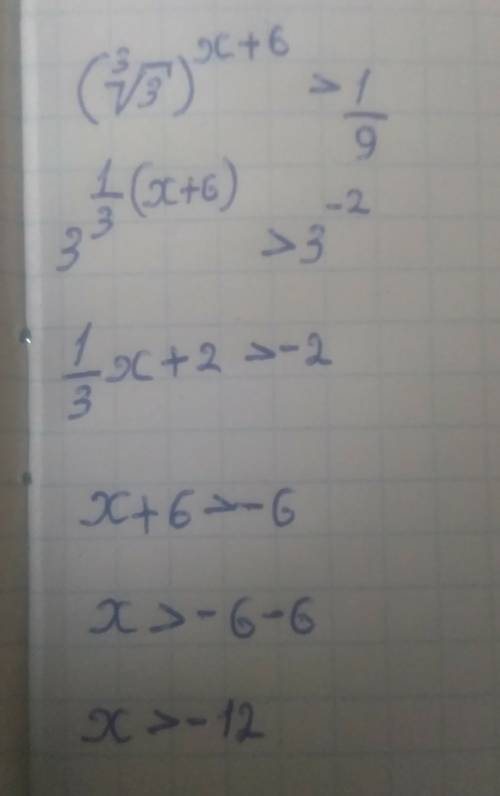 (∛3)^(x+6) > 1/9
3^(1/3(x+6)) > 3^(-2)
1/3x + 2 > -2
x + 6 > -6
x > -6 - 6
x > -12